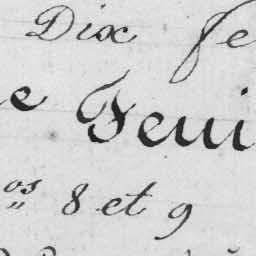 Dix fe
e Feui
os 8 et 9